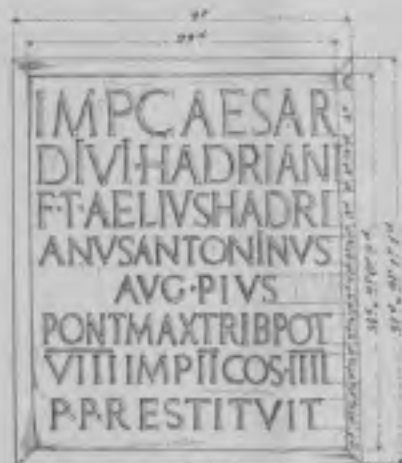 IMP CAESAR
DIVI·HADRIANI
F·T·AELIVS HADRI
ANVS ANTONINVS
AVG·PIVS
PONT MAX TRIB POT
VIIII IMP II COS·IIII
P·P·RESTITVIT